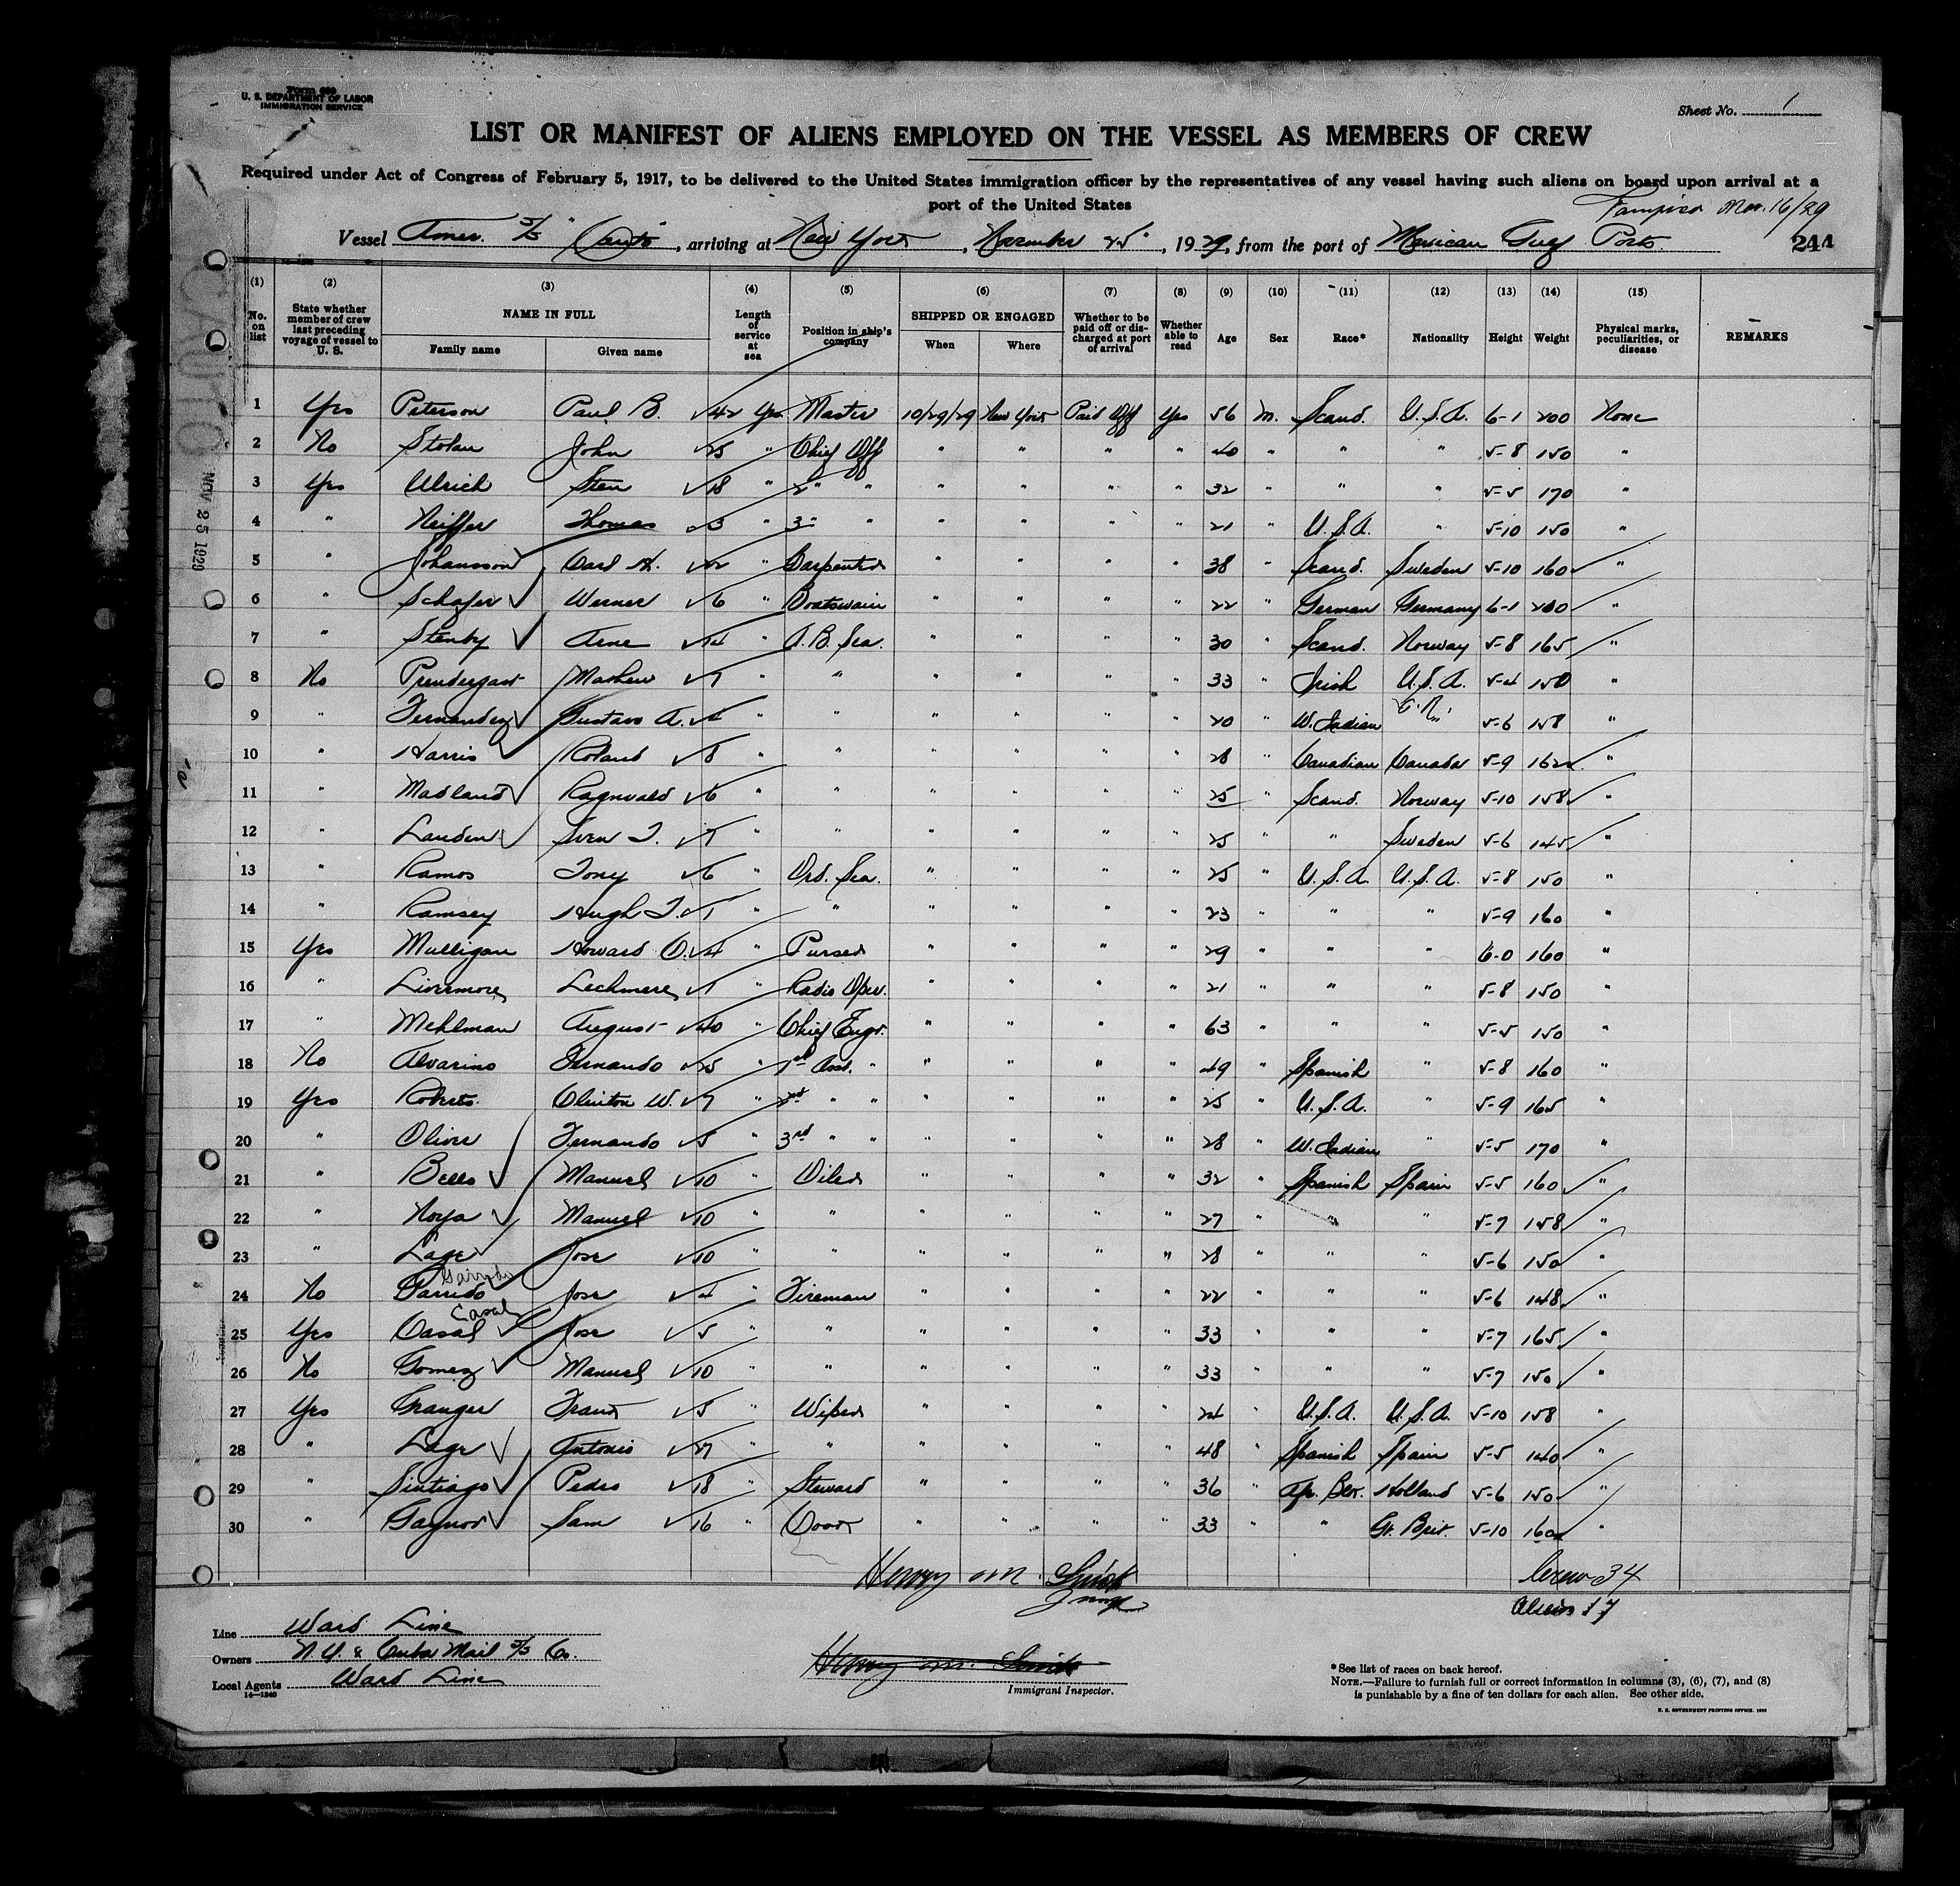 Form 689
U. S. DEPARTMENT OF LABOR
IMMIGRATION SERVICE
Sheet No. 1
LIST OR MANIFEST OF ALIENS EMPLOYED ON THE VESSEL AS MEMBERS OF CREW
Required under Act of Congress of February 5, 1917, to be delivered to the United States immigration officer by the representatives of any vessel having such aliens on board upon arrival at a
port of the United States
Tampico Nov. 16/29
Vessel Amer. S/S "Cauto", arriving at New York, November 25", 1929, from the port of Mexican Gulf Ports.
244
(1) (2) (3) (4) (5) (6) (7) (8) (9) (10) (11) (12) (13) (14) (15)
No. on list | State whether member of crew last preceding voyage of vessel to U. S. | NAME IN FULL | Length of service at sea | Position in ship's company | SHIPPED OR ENGAGED | Whether to be paid off or discharged at port of arrival | Whether able to read | Age | Sex | Race* | Nationality | Height | Weight | Physical marks, peculiarities, or disease | REMARKS
Family name | Given name | When | Where
1 Yes Peterson Paul B. 42 Yrs. Master 10/29/29 New York Paid Off Yes 56 M. Scand. U.S.A. 6-1 200 None
2 No Stolan John 25 " Chief Off " " " " 40 " " " 5-8 150 "
3 Yes Ulrich Sten 18 " 2" " " " " " 32 " " " 5-5 170 "
4 " Neiffer Thomas 3 " 3" " " " " " 21 " U.S.A. " 5-10 150 "
5 " Johansson Carl H. 22 " Carpenter " " " " 38 " Scand. Sweden 5-10 160 "
6 " Schafer Werner 6 " Boatswain " " " " 22 " German Germany 6-1 200 "
7 " Stenby Arne 14 " A.B. Sea. " " " " 30 " Scand. Norway 5-8 165 "
8 No Prendergast Mathew 7 " " " " " " 33 " Irish U.S.A. 5-4 150 "
9 " Fernandez Gustavo A. 4 " " " " " " 20 " W. Indian " 5-6 158 "
10 " Harris Roland 8 " " " " " " 28 " Canadian Canada 5-9 162 "
11 " Madland Ragnvald 6 " " " " " " 25 " Scand. Norway 5-10 158 "
12 " Landen Sven T. 7 " " " " " " 25 " " Sweden 5-6 145 "
13 " Ramos Tony 6 " Ord. Sea. " " " " 25 " U.S.A. U.S.A. 5-8 150 "
14 " Ramsey Hugh T. 1 " " " " " " 23 " " " 5-9 160 "
15 Yes Mulligan Howard C. 4 " Purser " " " " 29 " " " 6-0 160 "
16 " Livermore Lechmere 1 " Radio Oper. " " " " 21 " " " 5-8 150 "
17 " Mehlman August 40 " Chief Engr. " " " " 63 " " " 5-5 150 "
18 No Alvarino Fernando 25 " 1st Asst. " " " " " 49 " Spanish " 5-8 160 "
19 Yes Roberts. Clinton W. 7 " 2nd " " " " " " 25 " U.S.A. " 5-9 165 "
20 " Oliver Fernando 5 " 3rd " " " " " " 28 " W. Indian " 5-5 170 "
21 " Bello Manuel 10 " Oiler " " " " 32 " Spanish Spain 5-5 160 "
22 " Noya Manuel 10 " " " " " " 27 " " " 5-7 158 "
23 " Lage Jose 10 " " " " " " 28 " " " 5-6 150 "
Garrido
24 No Garrido Jose 4 " Fireman " " " " 22 " " " 5-6 148 "
Casal
25 Yes Casal Jose 5 " " " " " " 33 " " " 5-7 165 "
26 No Gomez Manuel 10 " " " " " " 33 " " " 5-7 150 "
27 Yes Granger Frank 5 " Wiper " " " " 24 " U.S.A. U.S.A. 5-10 158 "
28 " Lage Antonio 27 " " " " " " 48 " Spanish Spain 5-5 140 "
29 " Sintiago Pedro 18 " Steward " " " " 36 " Af. Blk. Holland 5-6 150 "
30 " Gaynor Sam 16 " Cook " " " " 33 " " Gt. Brit. 5-10 160 "
Henry M.
Crew 34
Aliens 17
Line Ward Line
Owners N.Y. & Cuba Mail S/S Co.
Local Agents Ward Line
14—1240
Henry M.
Immigrant Inspector.
*See list of races on back hereof.
NOTE.—Failure to furnish full or correct information in columns (3), (6), (7), and (8)
is punishable by a fine of ten dollars for each alien. See other side.
U. S. GOVERNMENT PRINTING OFFICE
CAUTO
NOV 25 1929